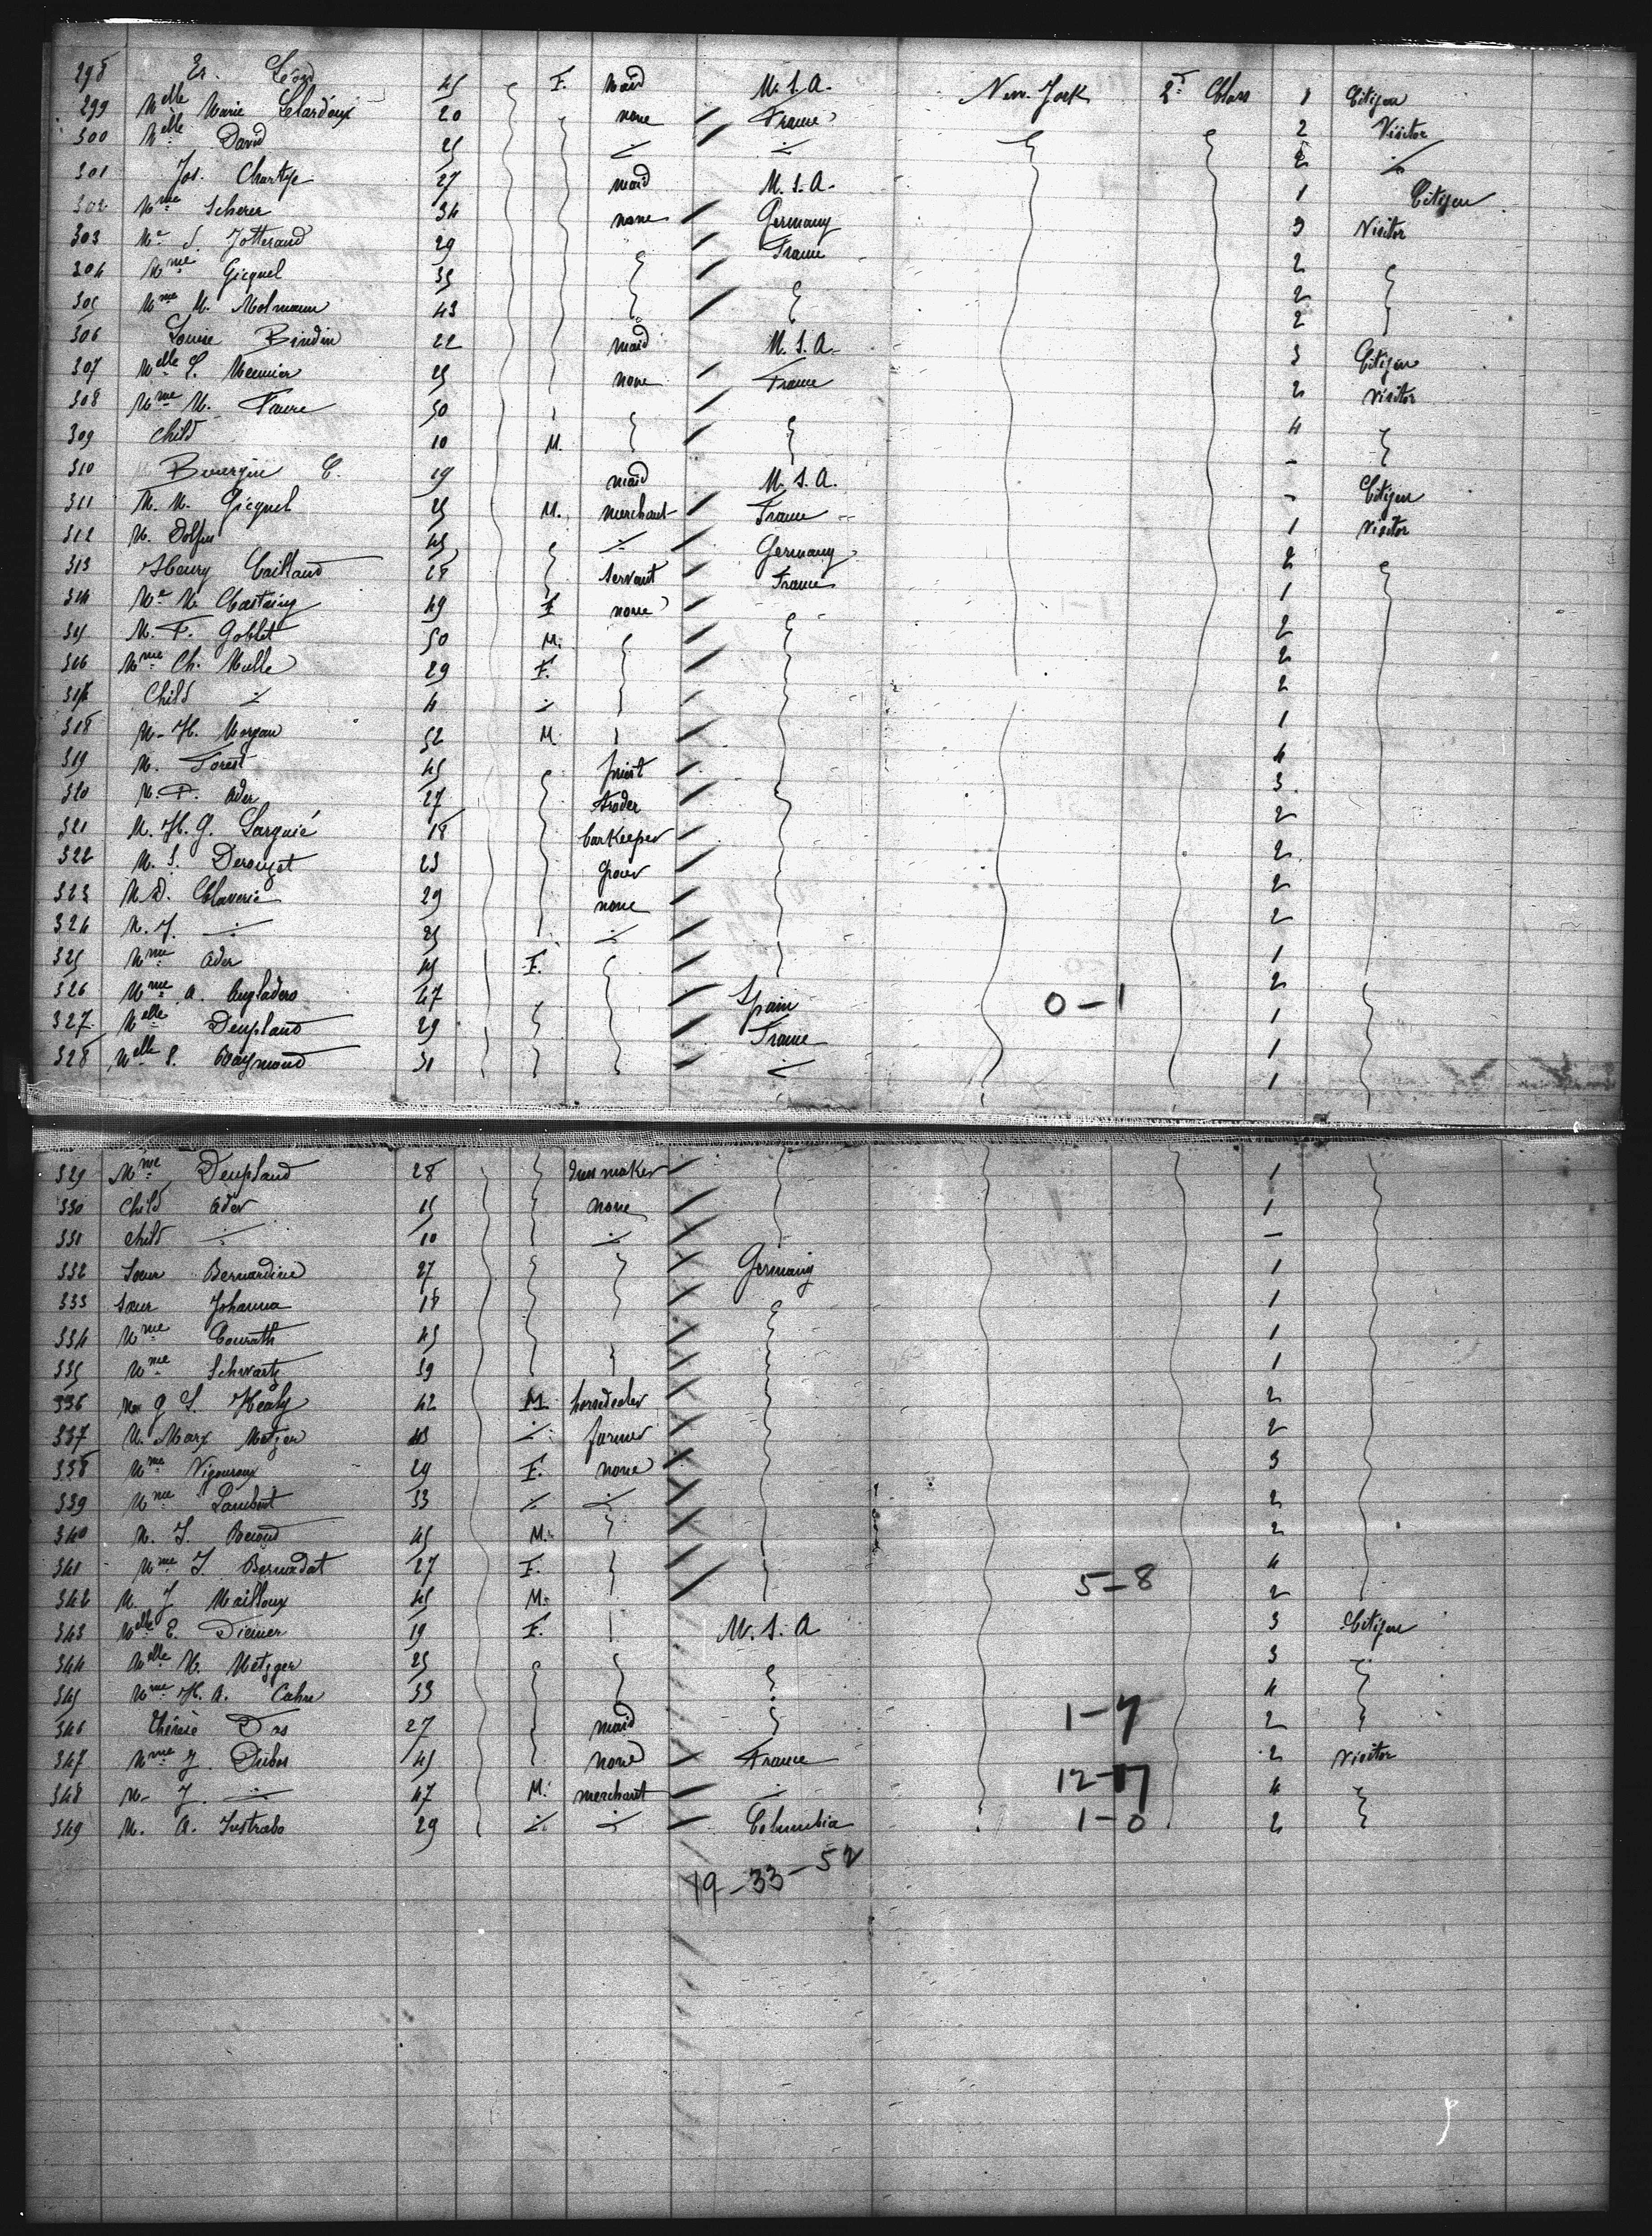 298 Er. Léon 45 F. maid U.S.A. New-York 2d Class 1 Citizen
299 Melle Marie Clardoux 20 none France 2 Visitor
300 Melle David 25 ⸓ ⸓ 2 ⸓
301 Jos. 27 maid U.S.A. 1 Citizen
302 Mme Scherer 34 none Germany 3 Visitor
303 Me J. Jotterand 29 France 2
304 Mme Gicquel 35 2
305 Mme M. Molmann 43 2
306 Louise Bindin 22 maid U.S.A. 3 Citizen
307 Melle L. Meunier 25 none France 2 Visitor
308 Mme M. Faure 50 4
309 Child 10 M. –
310 Bourgin C. 19 maid U.S.A. – Citizen
311 M. M. Gicquel 25 M. merchant France 1 Visitor
312 M. Dolfus 45 ⸓ Germany 2
313 Henry Caillaud 28 servant France 1
314 Me M. Chastaing 49 F none 2
315 M. F. Goblet 50 M. 2
316 Mme Ch. Mulle 29 F. 2
317 Child ⸓ 4 ⸓ 1
318 M. H. Morgan 52 M. 4
319 M. Forest 45 priest 3
320 M. P. Ader 27 trader 2
321 M. H. G. Larquié 18 barkeeper 2
322 M. S. Derouzet 23 grocer 2
323 M. D. Claverie 29 none 2
324 M. J. ⸓ 25 ⸓ 1
325 Mme Ader 45 F. 2
326 Mme A. Angladero 47 Spain 0–1 1
327 Melle Deupland 29 France 1
328 Melle S. Raymond 31 ⸓ 1
329 Mme Deupland 28 dressmaker 1
330 Child Ader 15 none 1
331 Child ⸓ 10 ⸓ –
332 Soeur Bernardine 27 Germany 1
333 Soeur Johanna 18 1
334 Mme Conrath 45 1
335 Mme Schwartz 39 1
336 G S. Healy 42 M horsedealer 2
337 M. Marx Metzger 43 ⸓ farmer 2
338 Mme Vigouroux 29 F. none 3
339 Mme Lambert 33 ⸓ ⸓ 2
340 M. J. Beraud 45 M. 2
341 Mme J. Bernadat 27 F. 5–8 4
342 M. J Mailloux 45 M. 2
343 Melle E. Diemer 19 F. U.S.A 3 Citizen
344 Melle M. Metzger 25 3
345 Mme H. A. Cahn 33 1–7 4
346 Thérèse Dos 27 maid 2
347 Mme J. Dubos 45 none France 12–17 2 Visitor
348 M. J. ⸓ 47 M. merchant ⸓ 4
349 M. A. Justrabo 29 ⸓ ⸓ Columbia 1–0 2
19–33–52